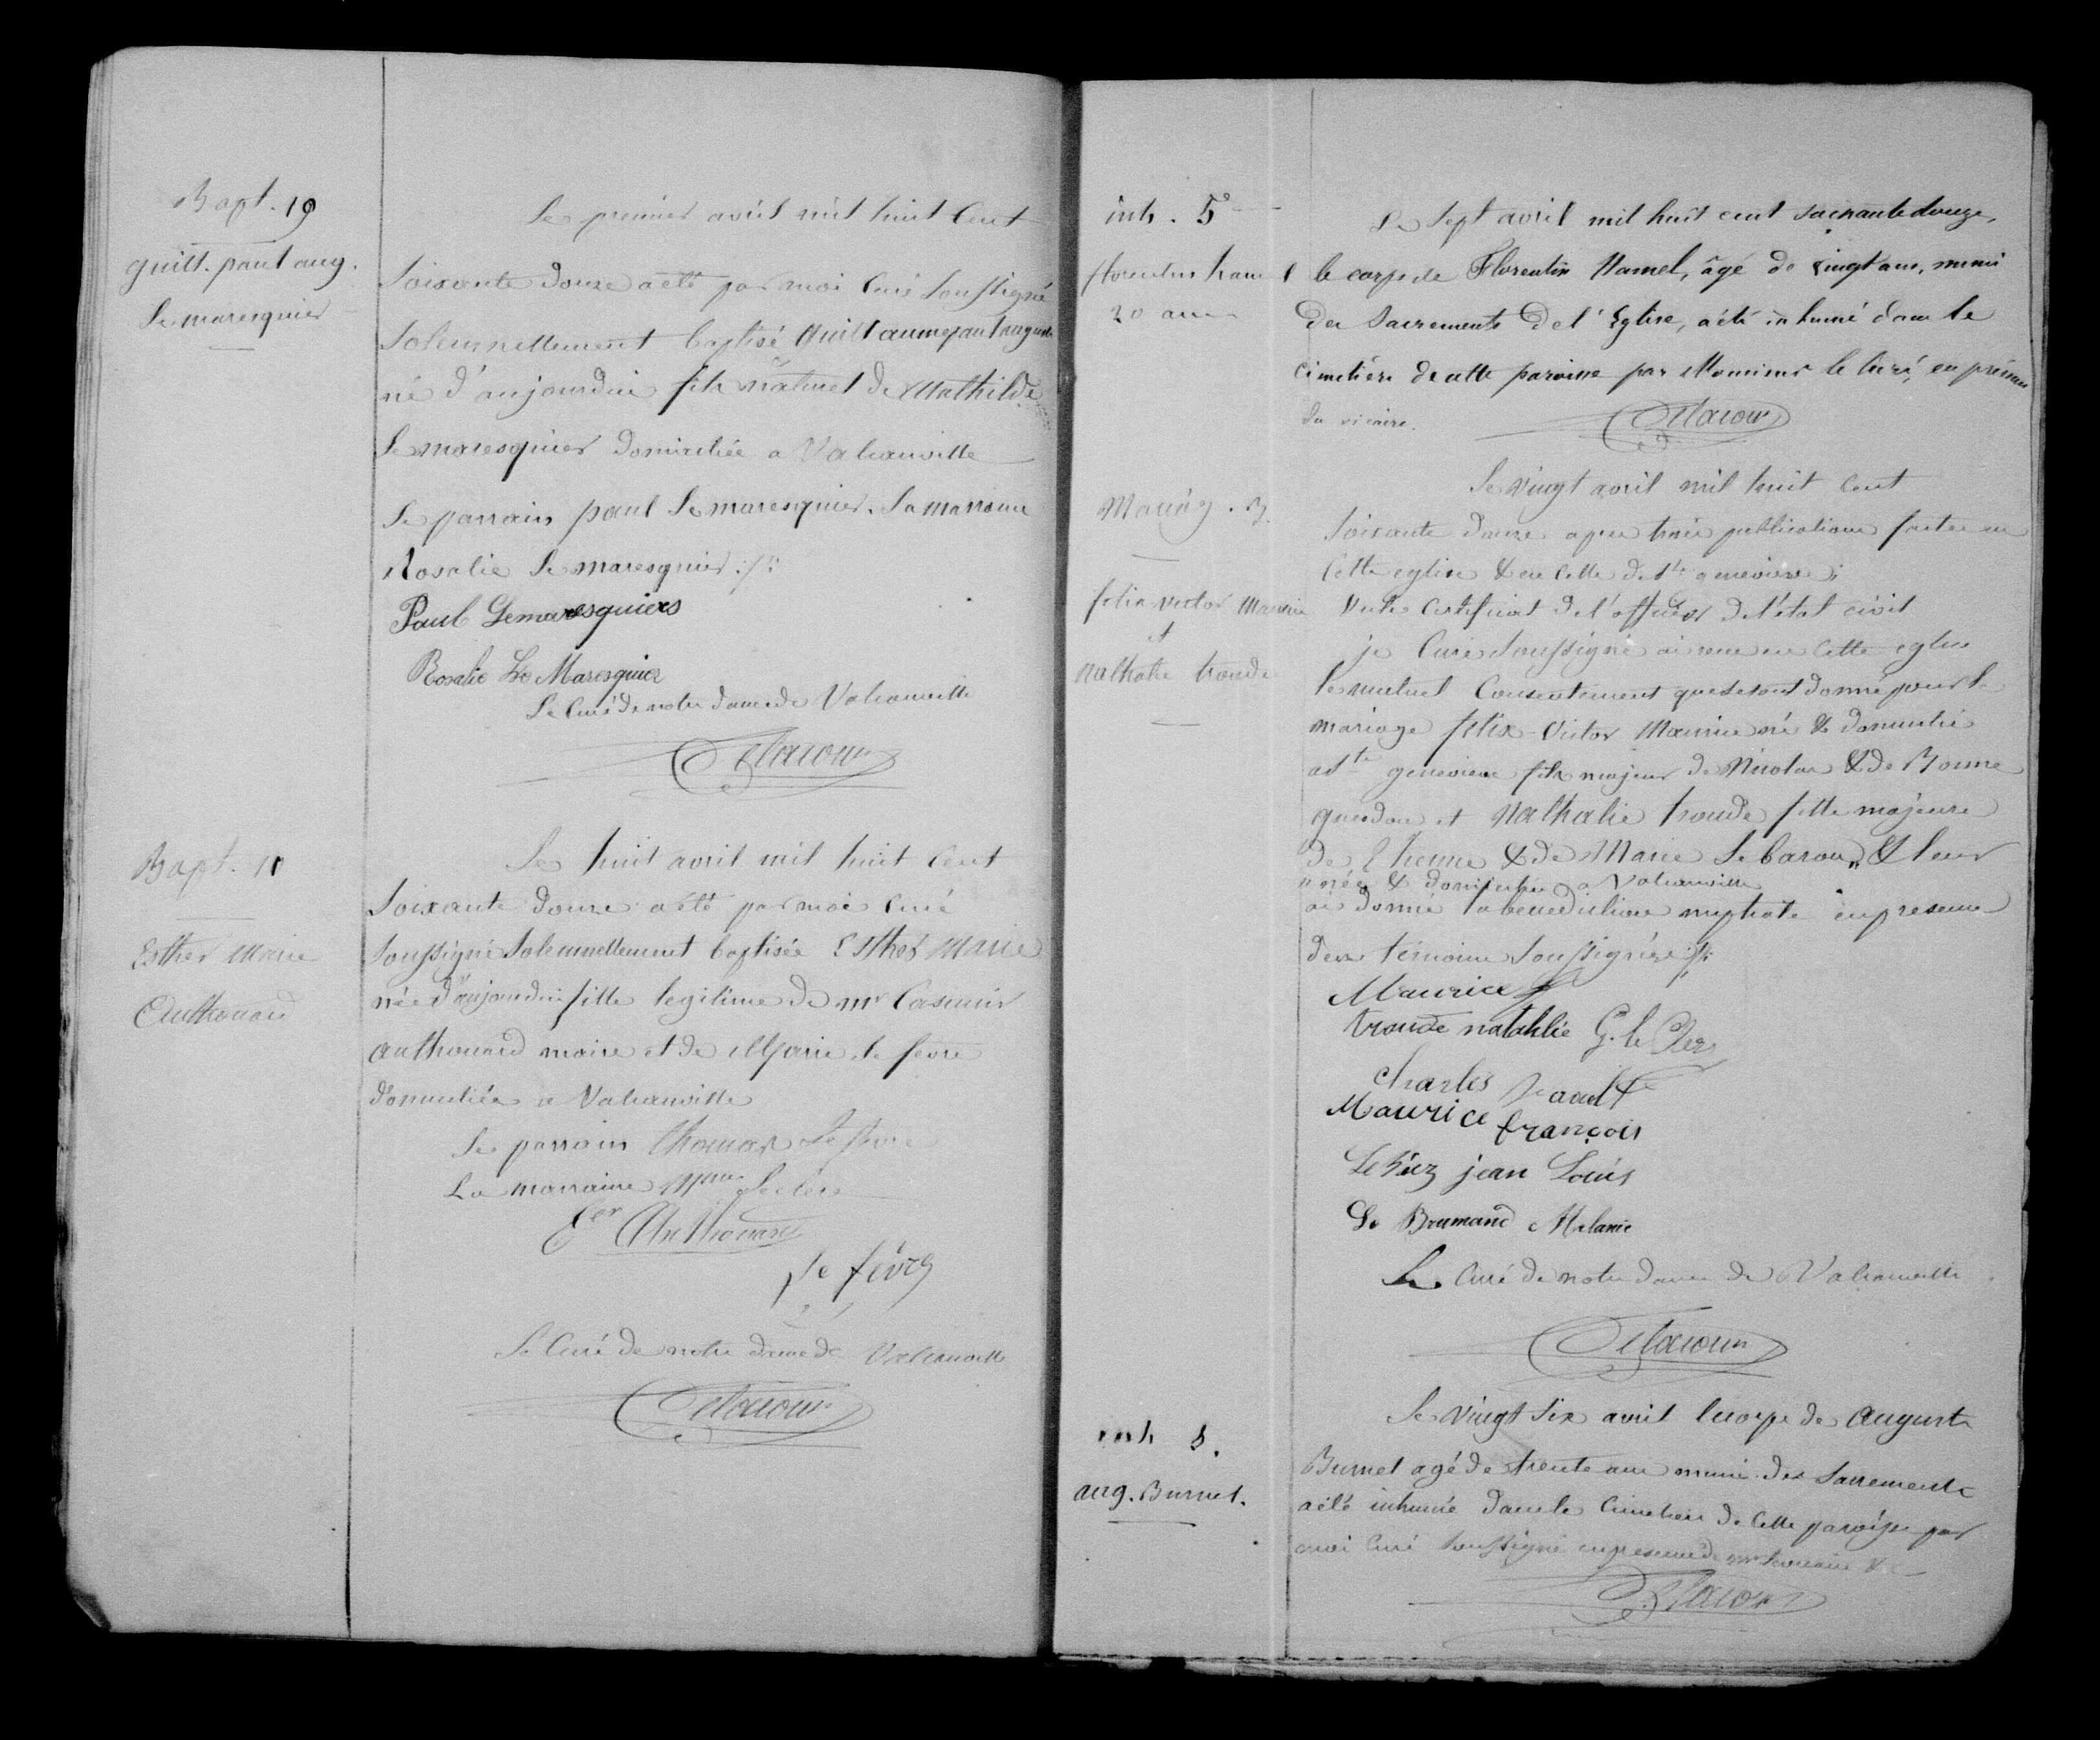 Bapt. 19
guill. paul aug.
Le maresquier
Le premier avril mil huit cent
soixante douze a été par moi curé soussigné
solemnellement baptisé guillaume paul auguste
né d'aujourdui fils naturel de Mathilde
Le maresquier domiciliée a Valcanville
Le parrain paul Le maresquier. La marraine
Rosalie Le maresquier
Paul Lemaresquiers
Rosalie Le Maresquier
Le curé de notre dame de Valcanville
Delacour
Bapt.
Esther Marie
Anthouard
Le huit avril mil huit cent
soixante douze a été par moi curé
soussigné solemnellement baptisée Esther Marie
née d'aujourdui fille legitime de mr Casimir
anthouard maire et de Marie le fevre
domiciliés a Valcanville
Le parrain thomas Le fevre
La marraine Mme Leclerc
Anthouard
Le fèvre
Le curé de notre dame de Valcanville
Delacour
inh. 5
florentin hamel
20 ans
Le sept avril mil huit cent soixante douze,
le corps de Florentin Hamel, âgé de vingt ans, muni
des Sacrements de l'Eglise, a été inhumé dans le
cimetière de cette paroisse par Monsieur le Curé, en présence
du vicaire.
Delacour
Mariag. 3.
felix victor Maurice
et
nathalie troude
Le vingt avril mil huit cent
soixante douze apres trois publications faites en
cette eglise & en celle de ste genevieve;
Vu le certificat de l'officier de l'état civil
je curé soussigné ai recu en cette eglise
le mutuel consentement que se sont donné pour le
mariage felix-Victor Maurice né & domicilié
a ste genevieve fils majeur de Nicolas & de Bonne
guesdon et Nathalie troude fille majeure
de Etienne & de Marie Le baron „ & leur
„ née & domiciliée a Valcanville
ai donné la benediction nuptiale en presence
des temoins soussignés
Maurice
troude natahlie G. le Clerc
Charles
Maurice françois
jean Louis
Le Brumand Melanie
Le Curé de notre dame de Valcanville
Delacour
inh
aug. Burnel.
Le vingt six avril le corps de Auguste
Burnel agé de trente ans muni des sacrements
a été inhumé dans le cimetiere de cette paroisse par
moi curé soussigné en presence de mr
Delacour